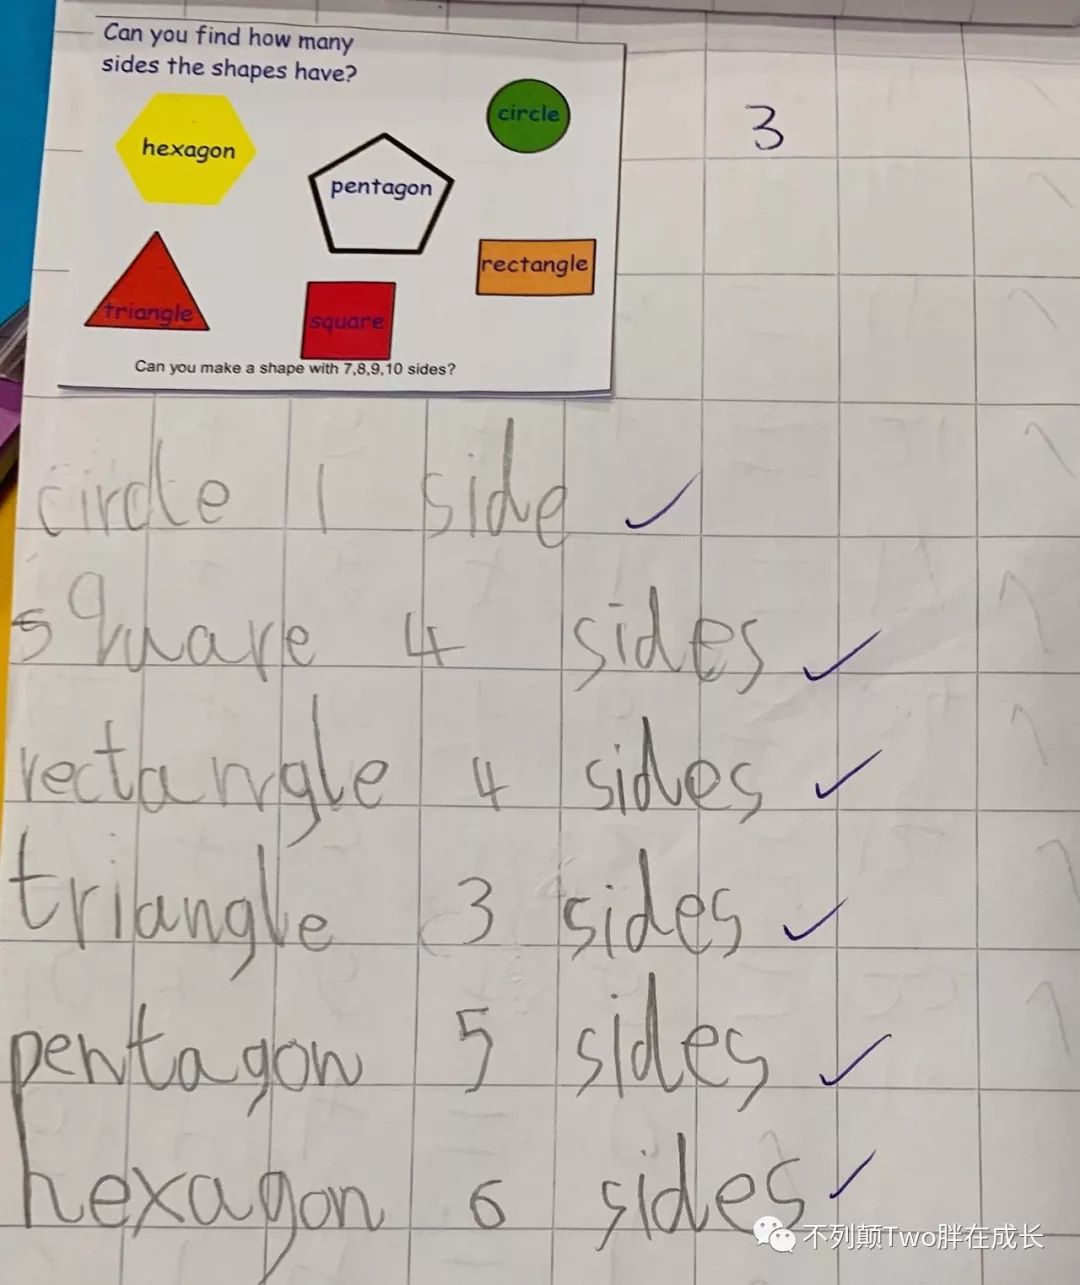 Can you find how many
sides the shapes have?
circle
hexagon
pentagon
rectangle
triangle
square
Can you make a shape with 7,8,9,10 sides?
3
circle 1 side
square 4 sides
rectangle 4 sides
triangle 3 sides
pentagon 5 sides
hexagon 6 sides
不列颠Two胖在成长